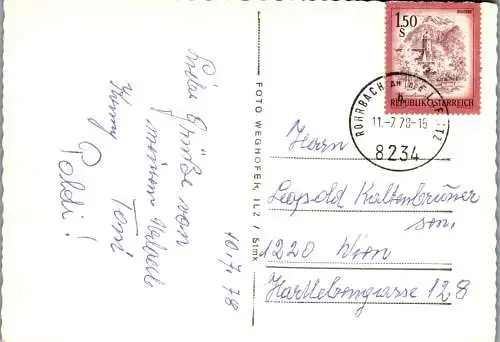 Liebe Grüße von
meinem Urlaub
Toni
Poldi !
10.7.78
FOTO WEGHOFER, ILZ / Stmk
1.50
S
REPUBLIK ÖSTERREICH
ROHRBACH AN DER
11.-7.78-15
8234
Herrn
Leopold Kaltenbrunner
sen.
1220 Wien
Hartlebengasse 128